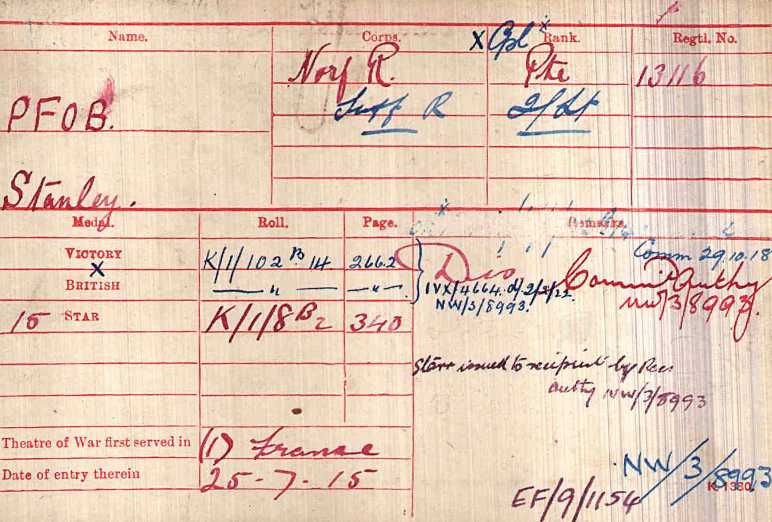 Name. Corps. X Cpl x Rank. Regtl. No.
Norf R. Pte 13116
PFOB. Suff R 2/Lt
Stanley.
Medal. Roll. Page. Remarks.
VICTORY K/1/102 B 14 2662 Comm 29.10.18
X
BRITISH — " — — " — IVX/4664 d/2/2/22
NW/3/8993. NW/3/8993.
15 STAR K/1/8 B 2 340
Star issued to recipient by Rec
authy NW/3/8993
Theatre of War first served in (1) France
Date of entry therein 25-7-15
NW/3/8993
K 1380
EF/9/1154